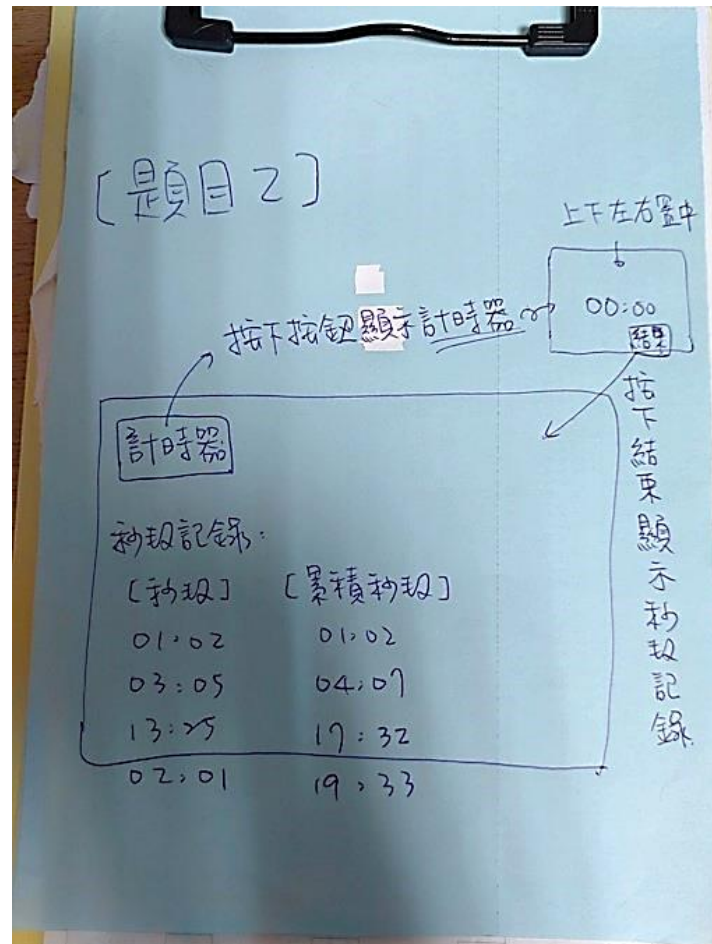 [題目2]
上下左右置中
00:00
結束
按下按鈕顯示計時器
計時器
按下結束顯示秒數記錄
秒數記錄:
[秒數] [累積秒數]
01:02 01:02
03:05 04:07
13:25 17:32
02:01 19:33